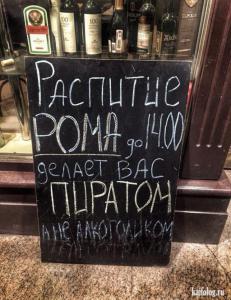 Распитие
РОМА до 14.00
делает ВАС
ПИРАТОМ
А НЕ АЛКОГОЛИКОМ
kaifolog.ru